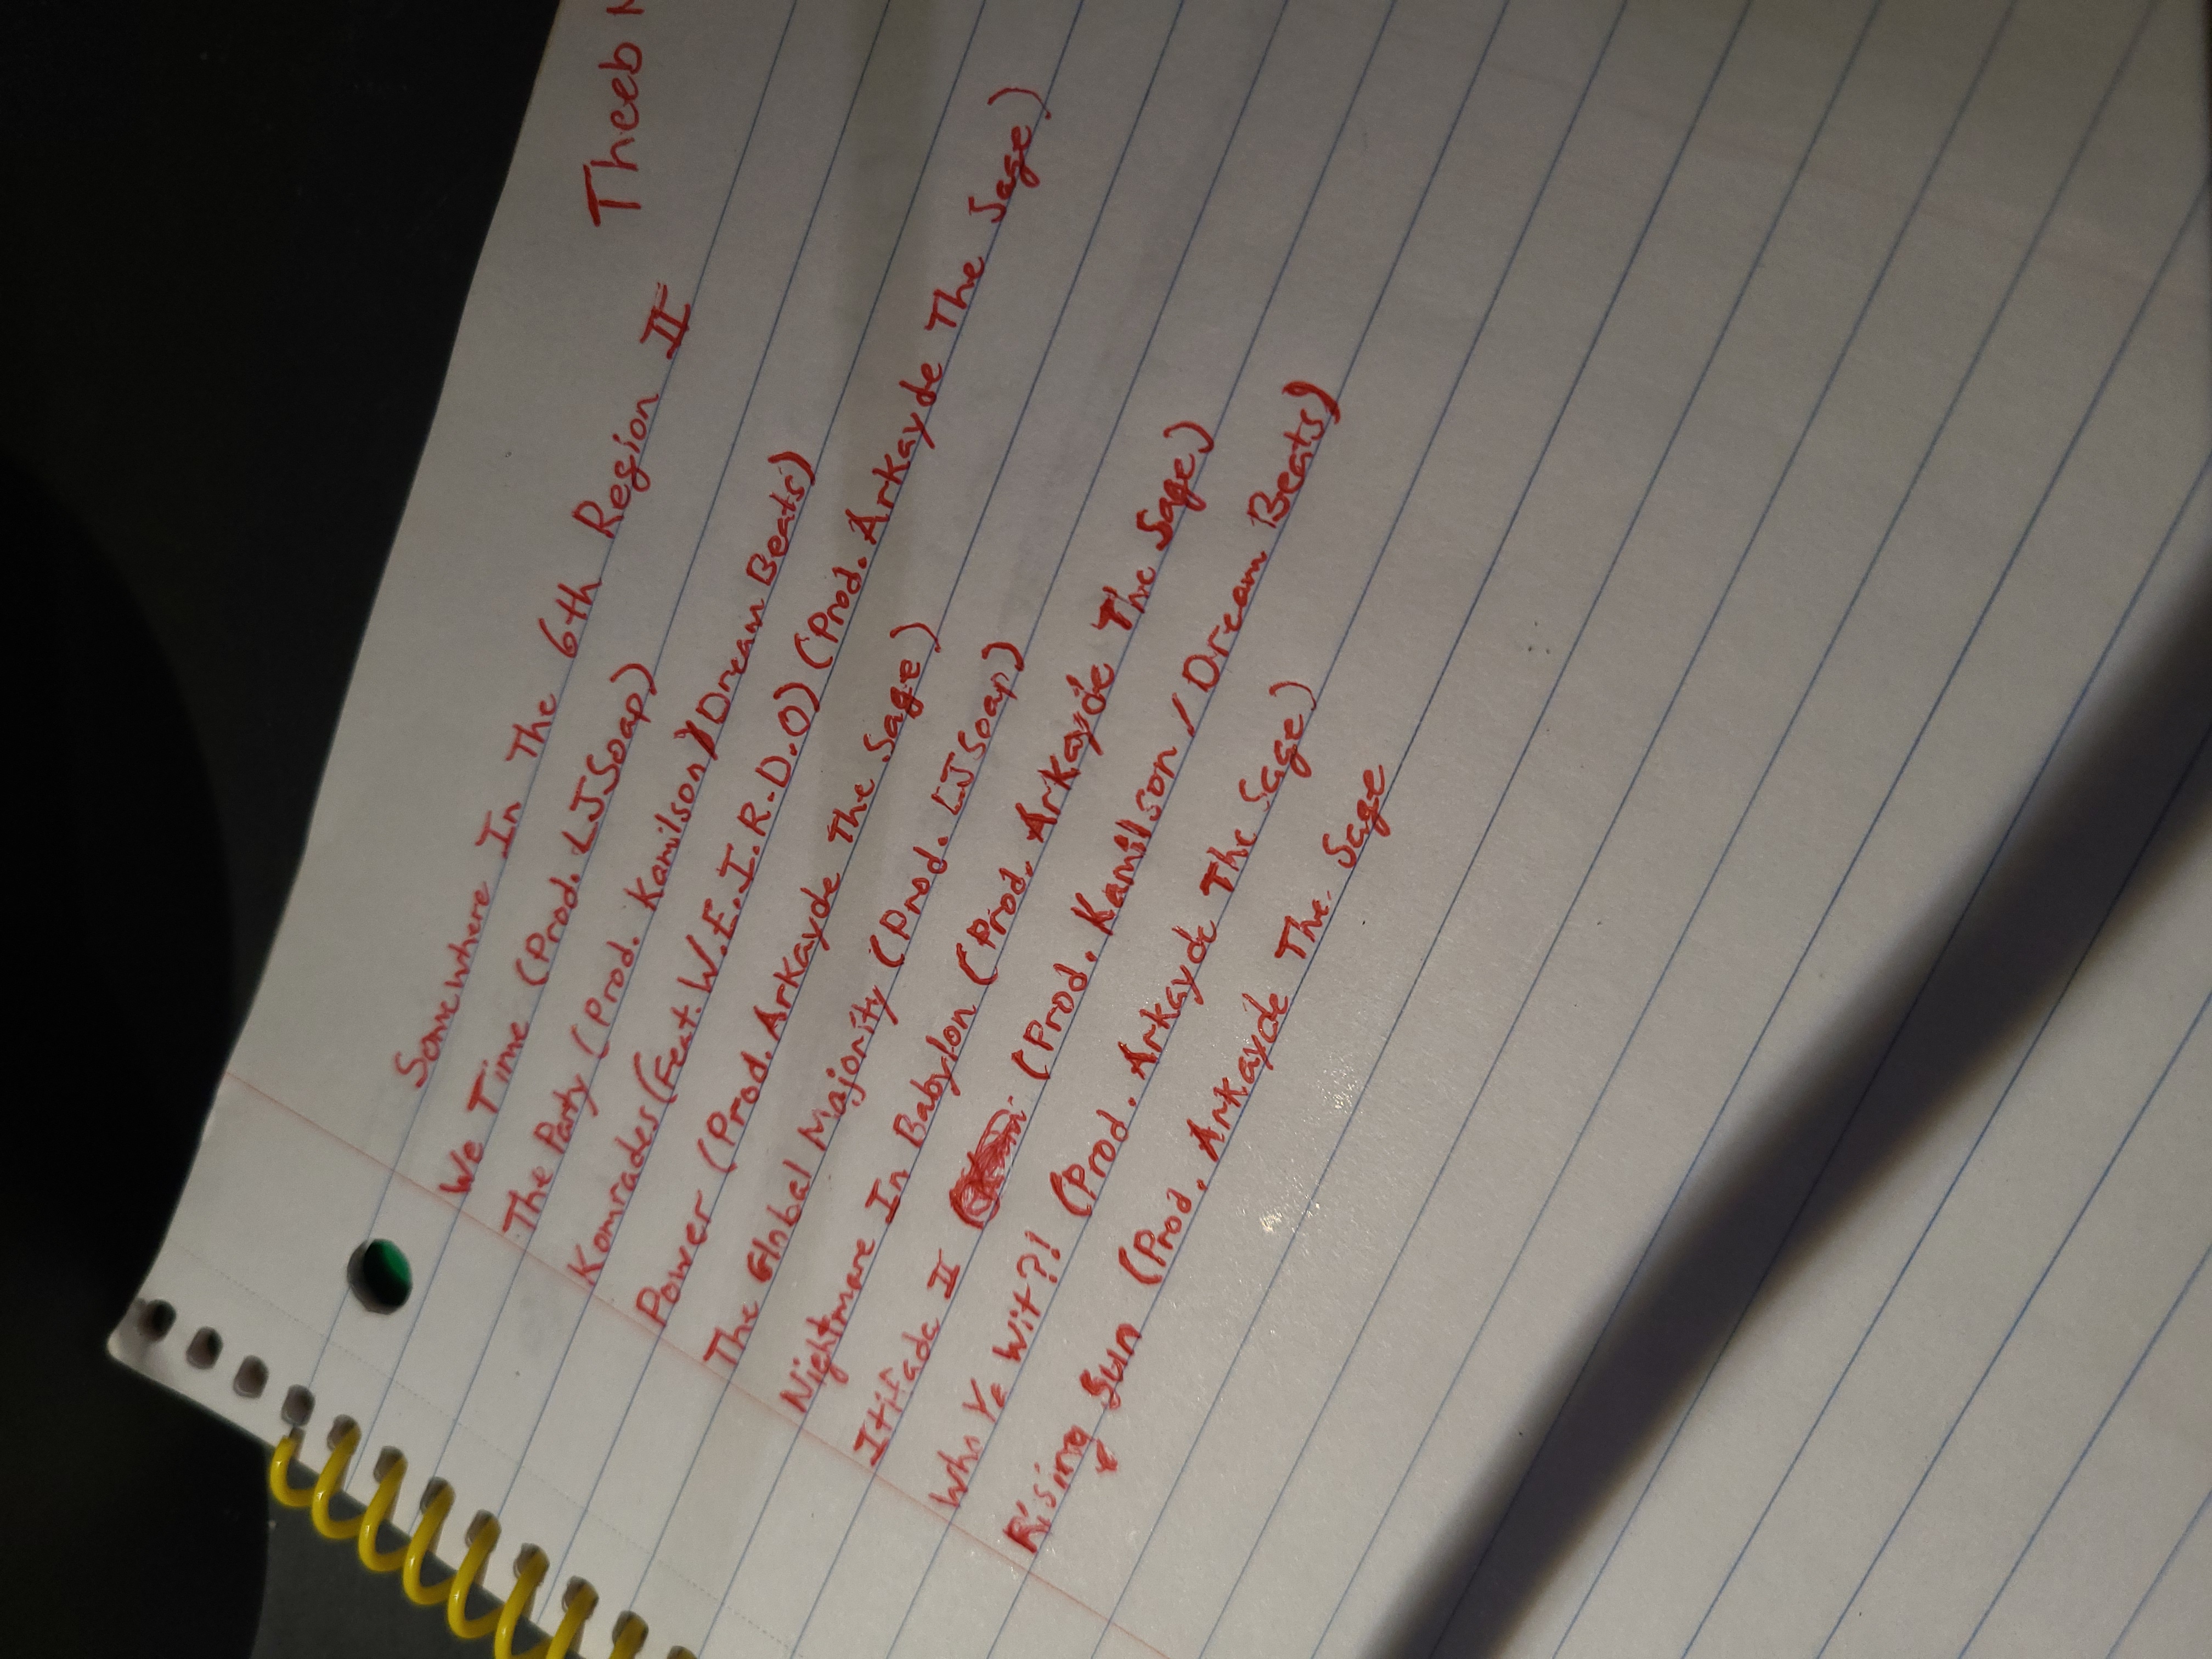 Theeb
Somewhere In The 6th Region II
We Time (Prod. LJSoap)
The Party (Prod. Kamilson/Dream Beats)
Komrades (Feat. W.E.I.R.D.O) (Prod. Arkayde The Sage)
Power (Prod. Arkayde The Sage)
The Global Majority (Prod. LJSoap)
Nightmare In Babylon (Prod. Arkayde The Sage)
Itifada II (Prod. Kamilson/Dream Beats)
Who Ya Wit?! (Prod. Arkayde The Sage)
Rising Sun (Prod. Arkayde The Sage